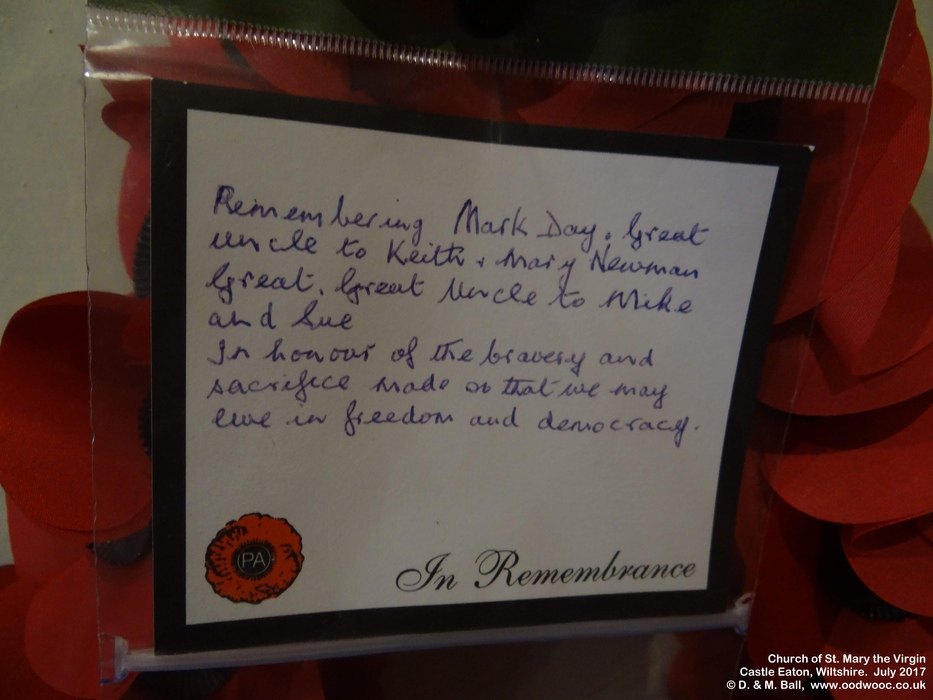 Remembering Mark Day. Great
uncle to Keith + Mary Newman
Great, Great Uncle to Mike
and Sue
In honour of the bravery and
sacrifice made so that we may
live in freedom and democracy.
PA
In Remembrance
Church of St. Mary the Virgin
Castle Eaton, Wiltshire. July 2017
© D. & M. Ball, www.oodwooc.co.uk